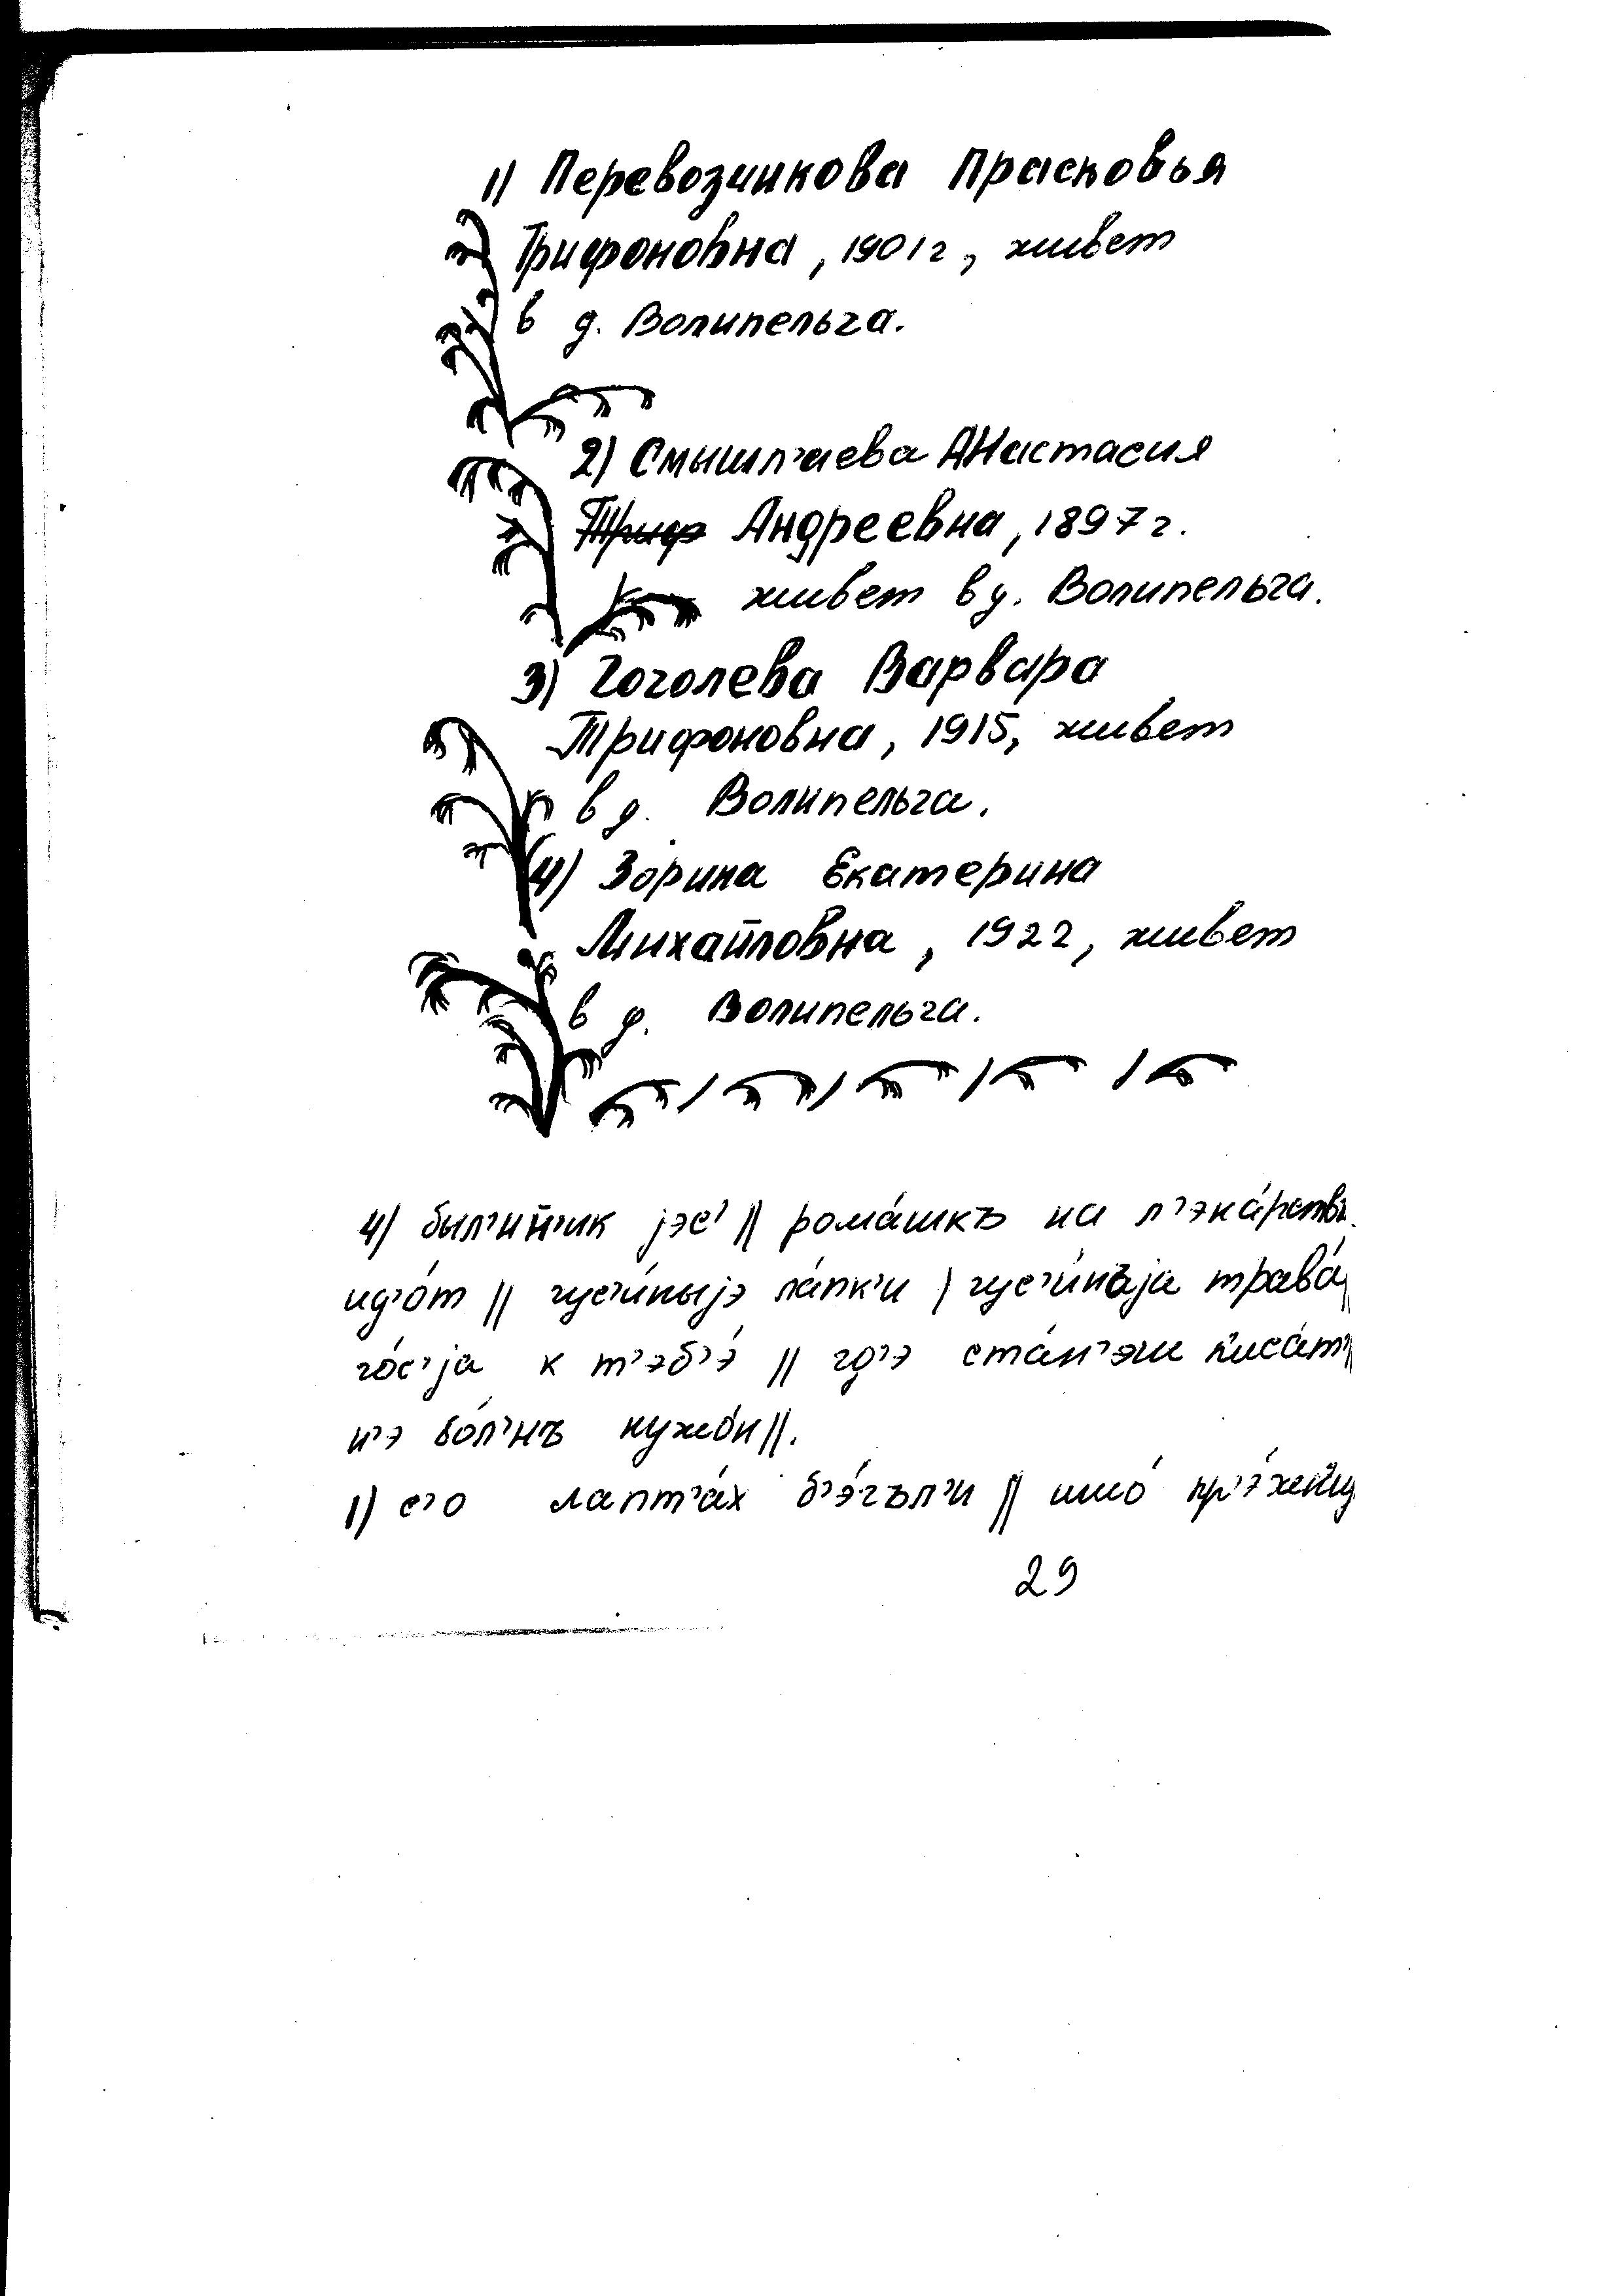 1) Перевозчикова Прасковья
Трифоновна, 1901 г, живет
в д. Волипельга.
2) Смышляева Анастасия
Андреевна, 1897 г.
живет в д. Волипельга.
3) Гоголева Варвара
Трифоновна, 1915, живет
в д. Волипельга.
4) Зорина Екатерина
Михайловна, 1922, живет
в д. Волипельга.
4) jэс' || рома́шкъ на л'эка́рствъ
ид'о́т || гус'и́ныjэ ла́пк'и | гус'и́нъjа трава́ ||
го́с'jа к т'эб'э́ || гд'э ста́н'эш писа́т' ||
н'э бо́л'нъ нужо́н ||.
1) с'о лапт'а́х б'э́гъл'и || ишо́
29